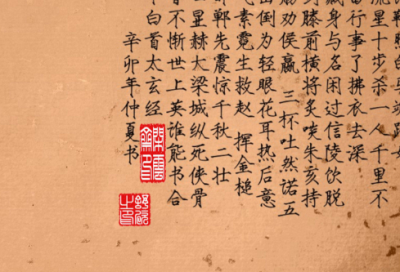 流星十步杀一人千里不
行事了拂衣去深
藏身与名闲过信陵饮脱
膝前横将炙啖朱亥持
劝侯嬴 三杯吐然诺五
倒为轻眼花耳热后意
气素霓生救赵 挥金槌
郸先震惊千秋二壮
显赫大梁城纵死侠骨
不惭世上英谁能书合
白首太玄经
辛卯年仲夏书